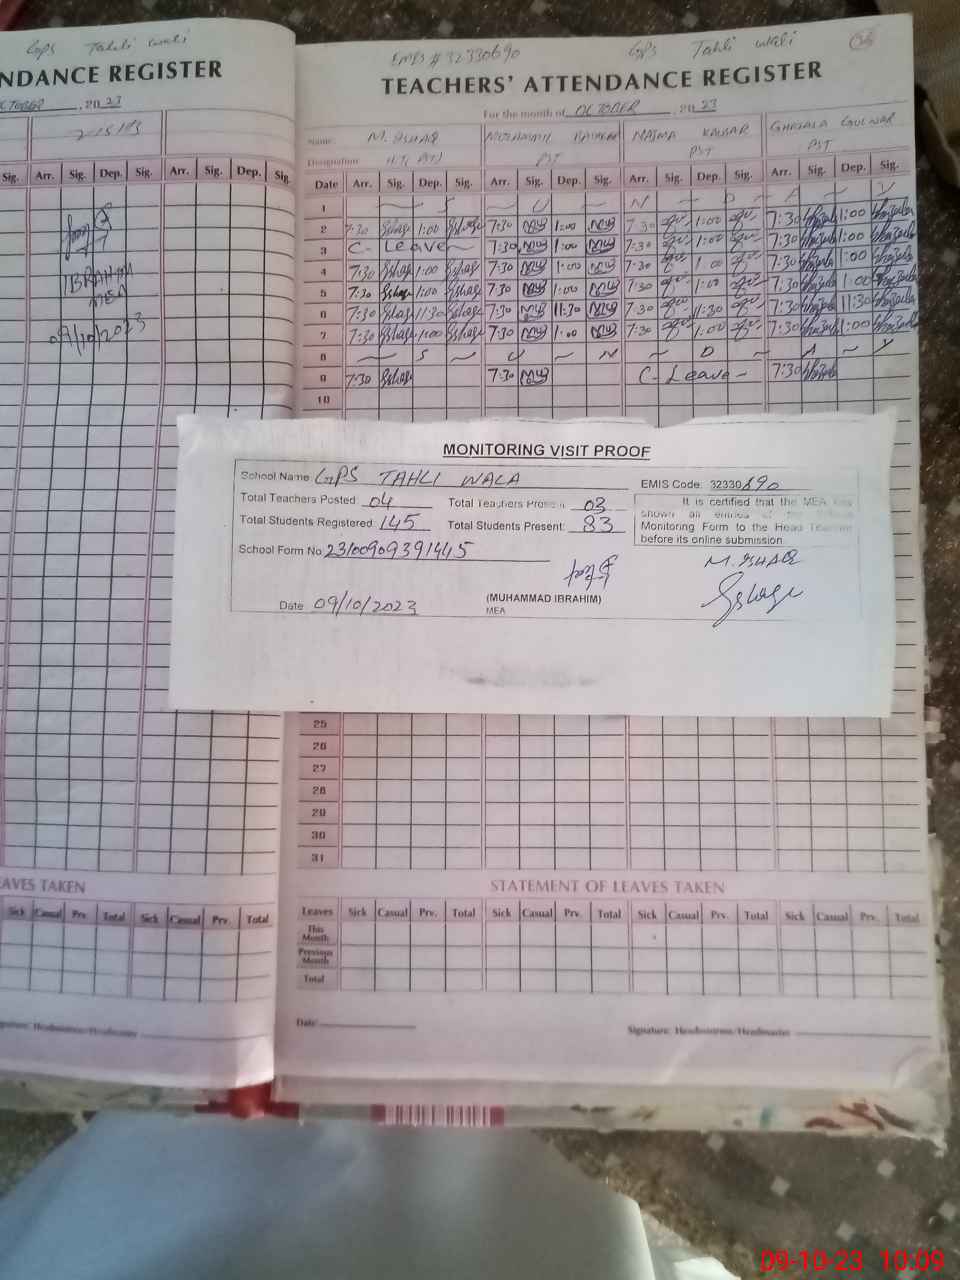 GPS Tahli Wali
NDANCE REGISTER
OCTOBER, 2023
Sig. Arr. Sig. Dep. Sig. Arr. Sig. Dep. Sig.
IBRAHIM
MEA
09/10/2023
EAVES TAKEN
Sick Casual Prv. Total Sick Casual Prv. Total
Signature: Headmistress/Headmaster
EMIS # 32330690 GPS Tahli Wali
TEACHERS' ATTENDANCE REGISTER
For the month of OCTOBER, 2023
Name M. ISHAQ NAJMA KAUSAR GHAZALA GULNAR
Designation PST PST PST
Date Arr. Sig. Dep. Sig. Arr. Sig. Dep. Sig. Arr. Sig. Dep. Sig. Arr. Sig. Dep. Sig.
1 S U N D A Y
2 7:30 Ishaq 1:00 Ishaq 7:30 1:00 7:30 1:00 7:30 Ghazala 1:00 Ghazala
3 C- Leave 7:30 1:00 7:30 1:00 7:30 Ghazala 1:00 Ghazala
4 7:30 Ishaq 1:00 Ishaq 7:30 1:00 7:30 1:00 7:30 Ghazala 1:00 Ghazala
5 7:30 Ishaq 1:00 Ishaq 7:30 1:00 7:30 1:00 7:30 Ghazala 1:00 Ghazala
6 7:30 Ishaq 11:30 Ishaq 7:30 11:30 7:30 11:30 7:30 Ghazala 11:30 Ghazala
7 7:30 Ishaq 1:00 Ishaq 7:30 1:00 7:30 1:00 7:30 Ghazala 1:00 Ghazala
8 S U N D A Y
9 7:30 Ishaq 7:30 C- Leave 7:30 Ghazala
10
MONITORING VISIT PROOF
School Name GPS TAHLI WALA EMIS Code: 32330690
Total Teachers Posted 04 Total Teachers Present 03
Total Students Registered 145 Total Students Present: 83
It is certified that the MEA has
shown all entries of the
Monitoring Form to the Head Teacher
before its online submission.
School Form No 23100909391445
M. ISHAQ
Ishaq
Date 09/10/2023 (MUHAMMAD IBRAHIM)
MEA
25
26
27
28
29
30
31
STATEMENT OF LEAVES TAKEN
Leaves Sick Casual Prv. Total Sick Casual Prv. Total Sick Casual Prv. Total Sick Casual Prv. Total
This Month
Previous Month
Total
Date Signature: Headmistress/Headmaster
09-10-23 10:09